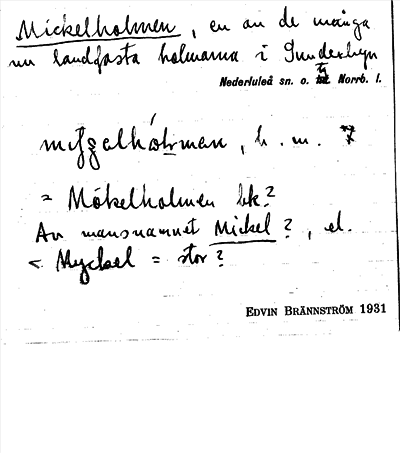 Mickelholmen, en av de många
nu landfasta holmarna i Sunderbyn
Nederluleå sn. o. Norrb. l.
h. m.
= Mökelholmen bk?
Av mansnamnet Mickel?, el.
< Myckel = stor?
EDVIN BRÄNNSTRÖM 1931